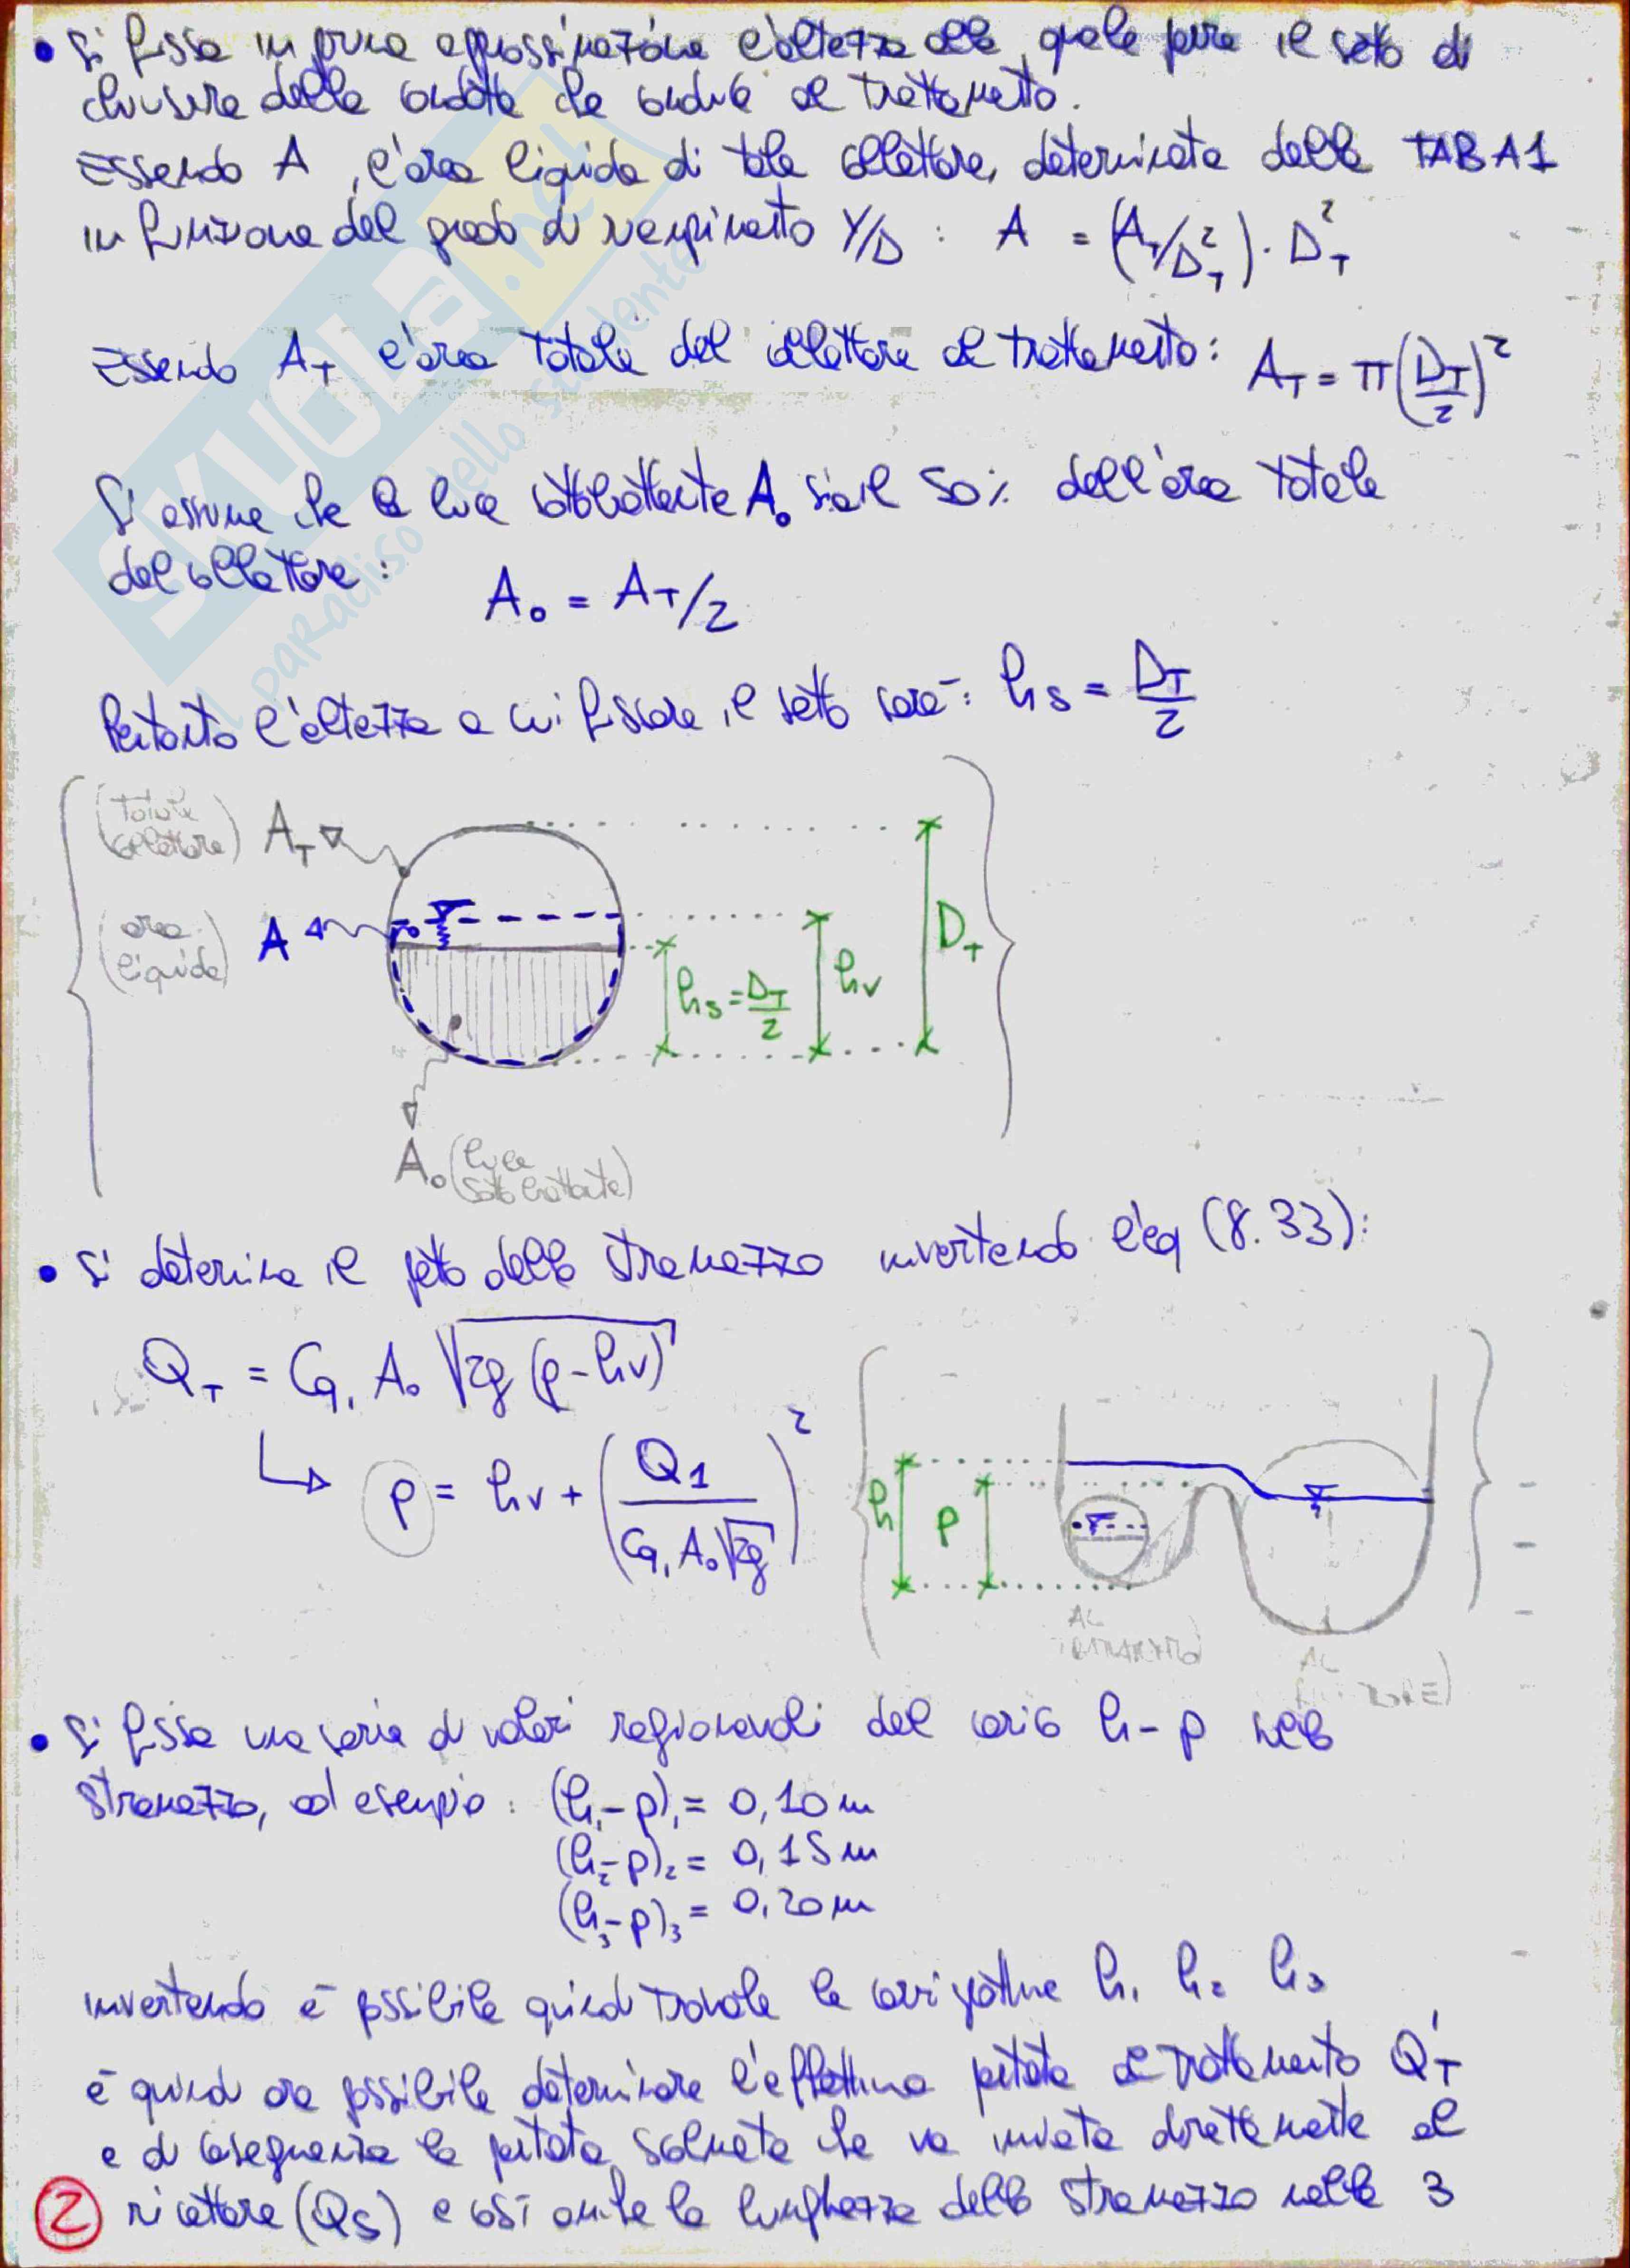 • Si fissa in prima approssimazione l'altezza alla quale porre il setto di
chiusura della condotta che conduce al trattamento.
Essendo A l'area liquida di tale collettore, determinata dalla TAB A1
in funzione del grado di riempimento Y/D : A = (A_T/D_T²) · D_T²
Essendo A_T l'area totale del collettore al trattamento: A_T = π(D_T/2)²
Si assume che la luce sottobattente A₀ sia il 50% dell'area totale
del collettore:
A₀ = A_T/2
Pertanto l'altezza a cui fissare il setto sarà: h_s = D_T/2
(Totale collettore) A_T
(area liquida) A
h_s = D_T/2
h_v
D_T
A₀ (luce sottobattente)
• Si determina il petto dello stramazzo invertendo l'eq (8.33):
Q_T = C_q1 A₀ √2g (p-h_v)
p = h_v + (Q_1 / C_q1 A₀ √2g)²
h
p
AL
AL
• Si fissa una serie di valori ragionevoli del carico h-p nello
stramazzo, ad esempio: (h₁-p)₁ = 0,10 m
(h₂-p)₂ = 0,15 m
(h₃-p)₃ = 0,20 m
invertendo è possibile quindi trovare le corrispettive h₁ h₂ h₃
è quindi ora possibile determinare l'effettiva portata al trattamento Q'_T
e di conseguenza la portata scolmata che va inviata direttamente al
② ricettore (Q_S) e così anche la lunghezza dello stramazzo nelle 3
SKUOLA.net
il paradiso dello studente